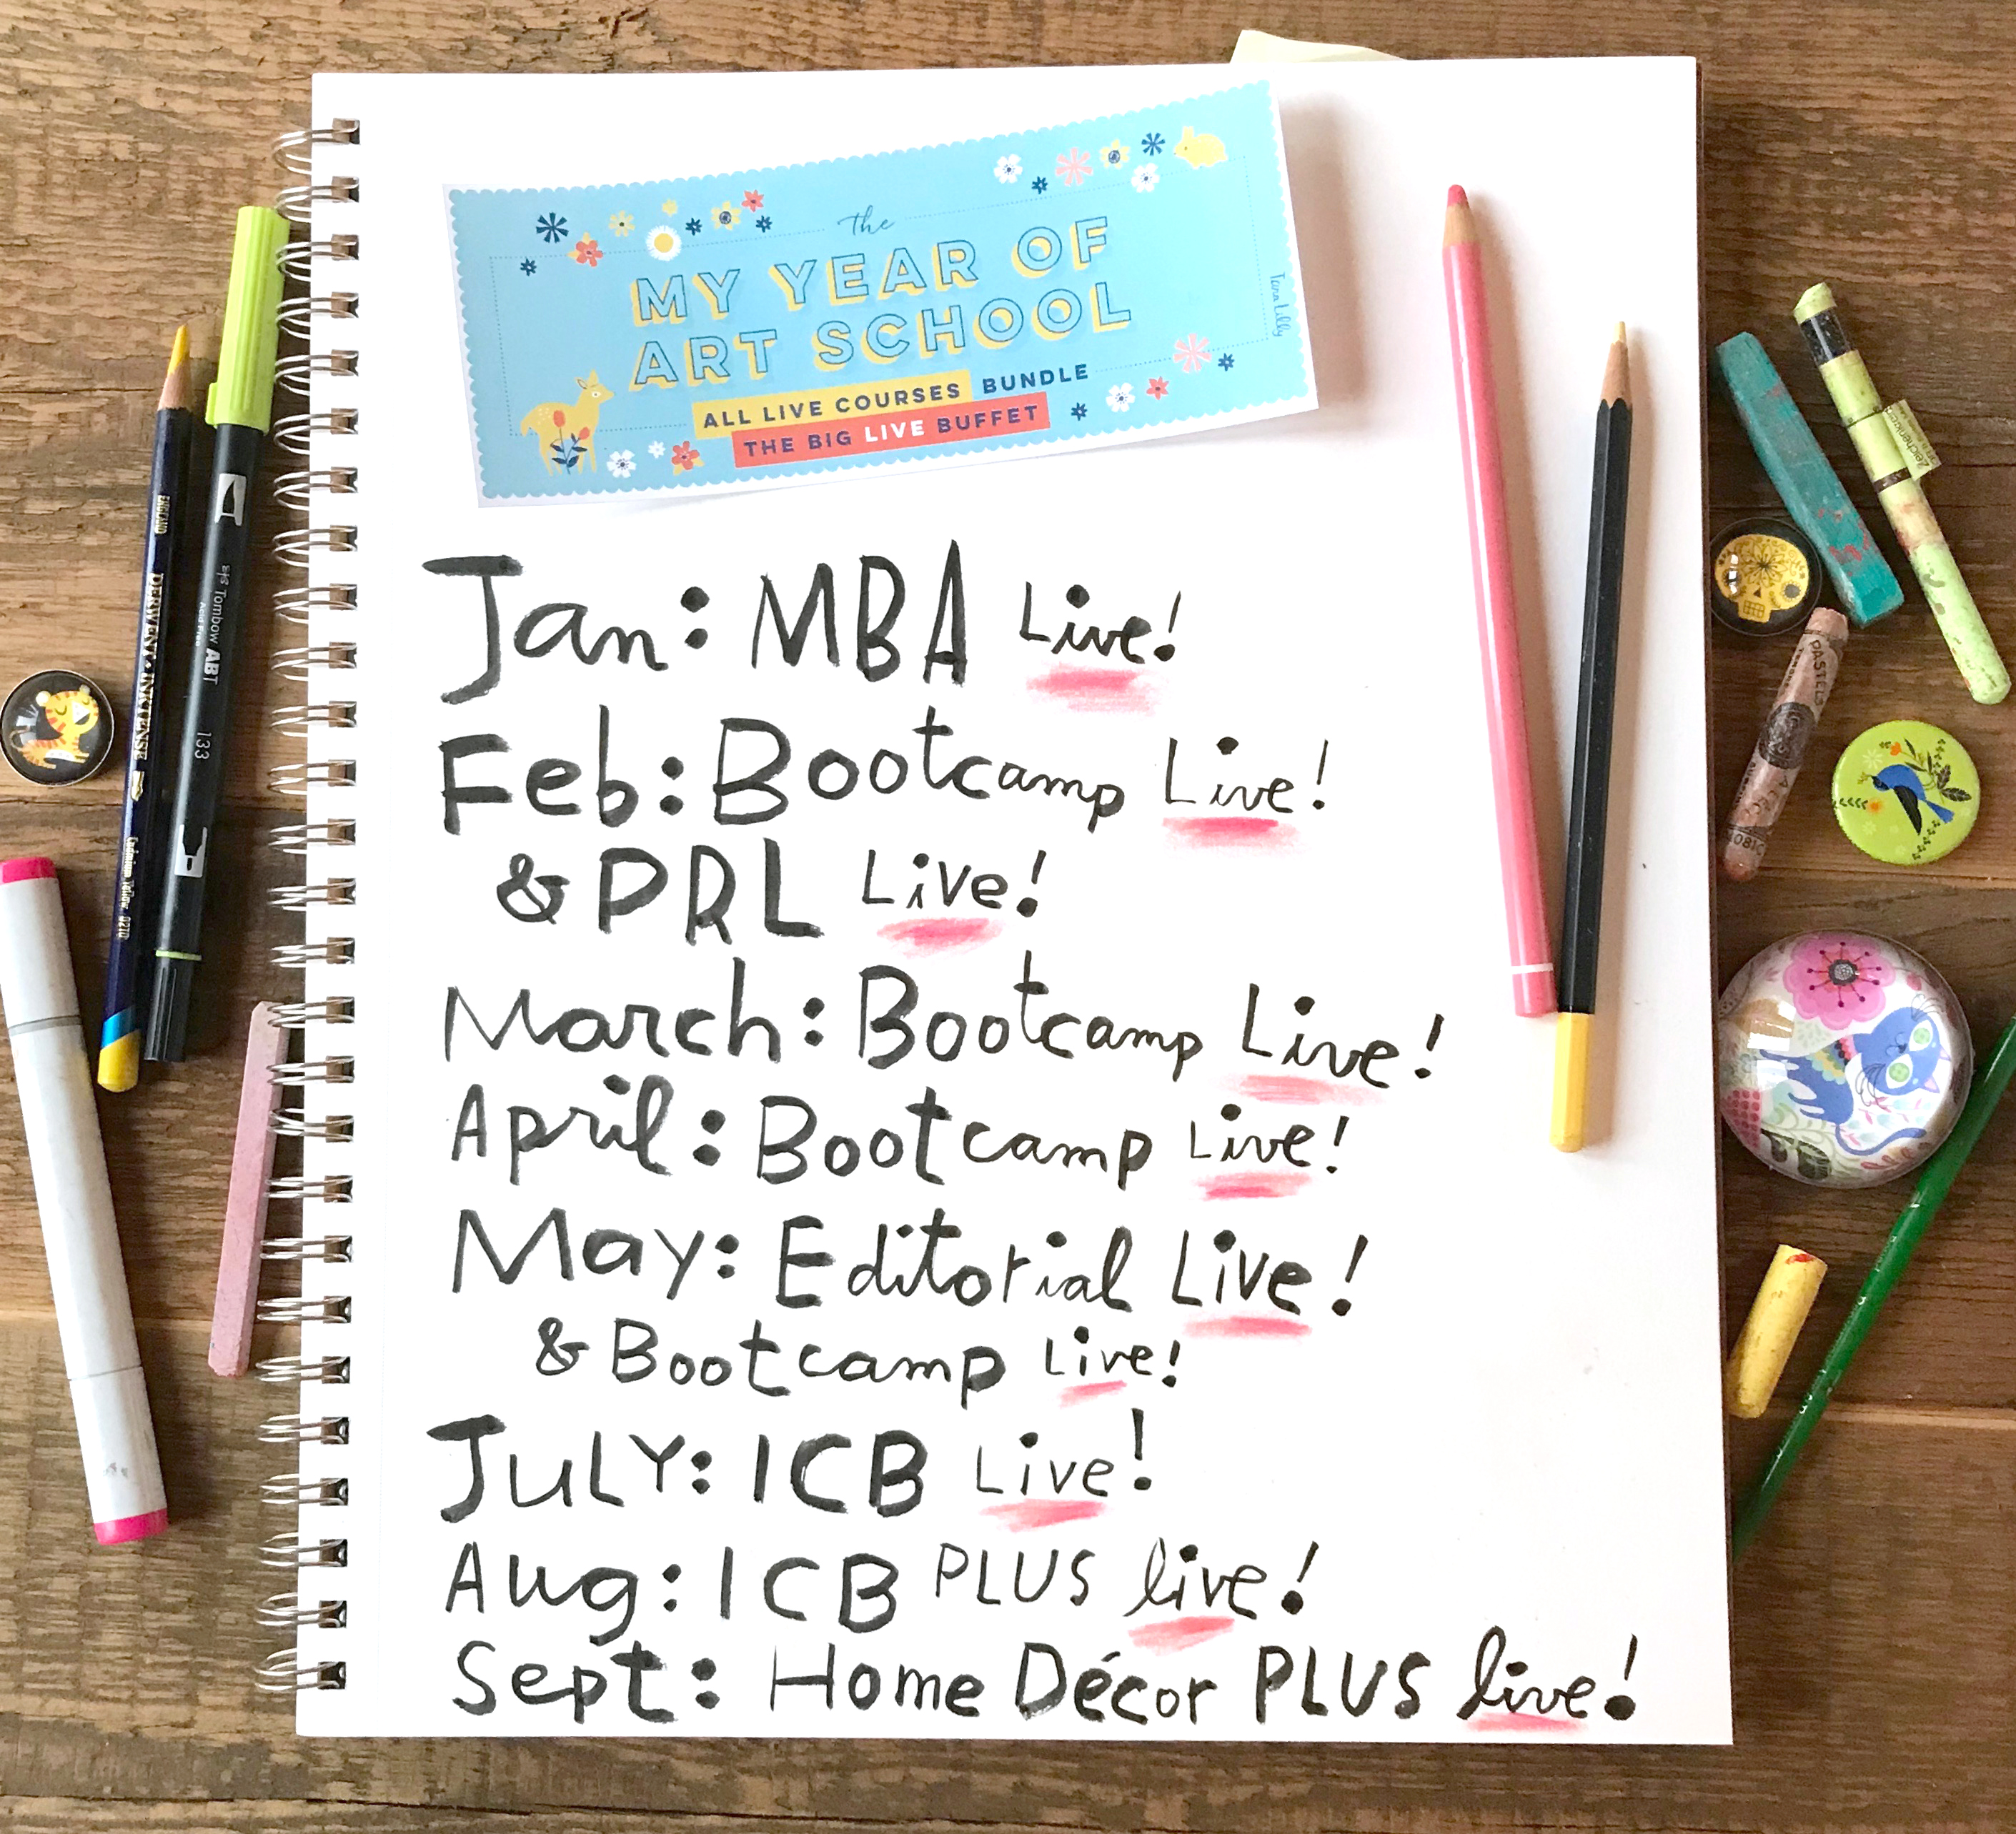 the
MY YEAR OF
ART SCHOOL
ALL LIVE COURSES BUNDLE
THE BIG LIVE BUFFET
Tara Lilly
Jan: MBA Live!
Feb: Bootcamp Live!
& PRL Live!
March: Bootcamp Live!
April: Bootcamp Live!
May: Editorial Live!
& Bootcamp Live!
JULY: ICB Live!
Aug: ICB PLUS live!
Sept: Home Décor PLUS live!
ENGLAND
DERWENT INKTENSE
Tombow ABT
133
PASTELS